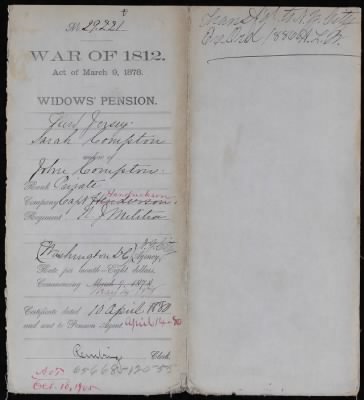 No 29221
WAR OF 1812.
Act of March 9, 1878.
WIDOWS' PENSION.
New Jersey.
Sarah Compton
widow of
John Compton.
Rank Private
Hendrickson
Company Capt
Regiment N. J. Militia
Washington D.C. Agency,
Rate per month—Eight dollars.
Commencing March 9, 1878
Certificate dated 10 April 1880
and sent to Pension Agent April 14-80
Clerk.
Act
Oct. 10, 1905
Transf'd to N.Y. City
1880